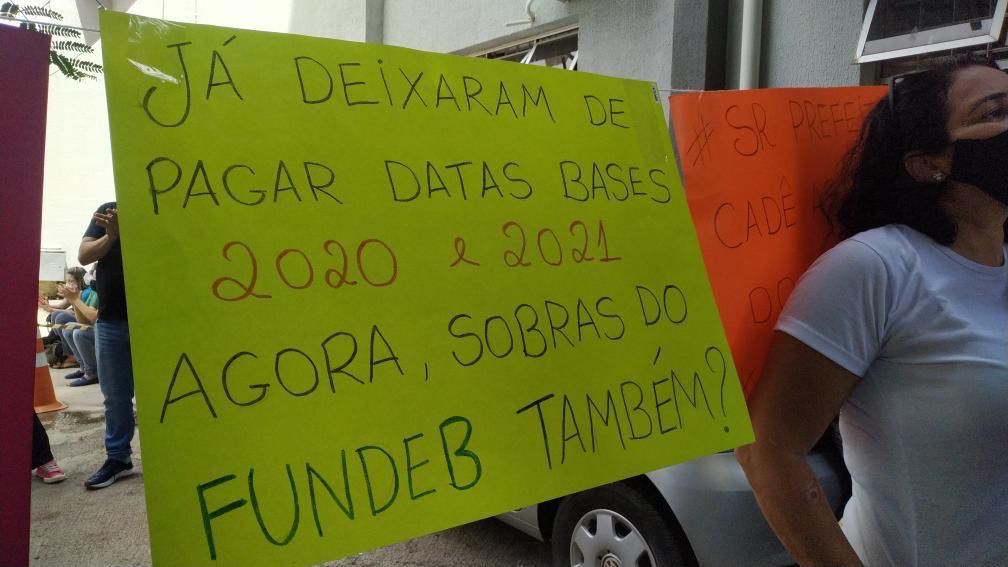 JÁ DEIXARAM DE
PAGAR DATAS BASES
2020 e 2021
AGORA, SOBRAS DO
FUNDEB TAMBÉM?
# SR
CADÊ